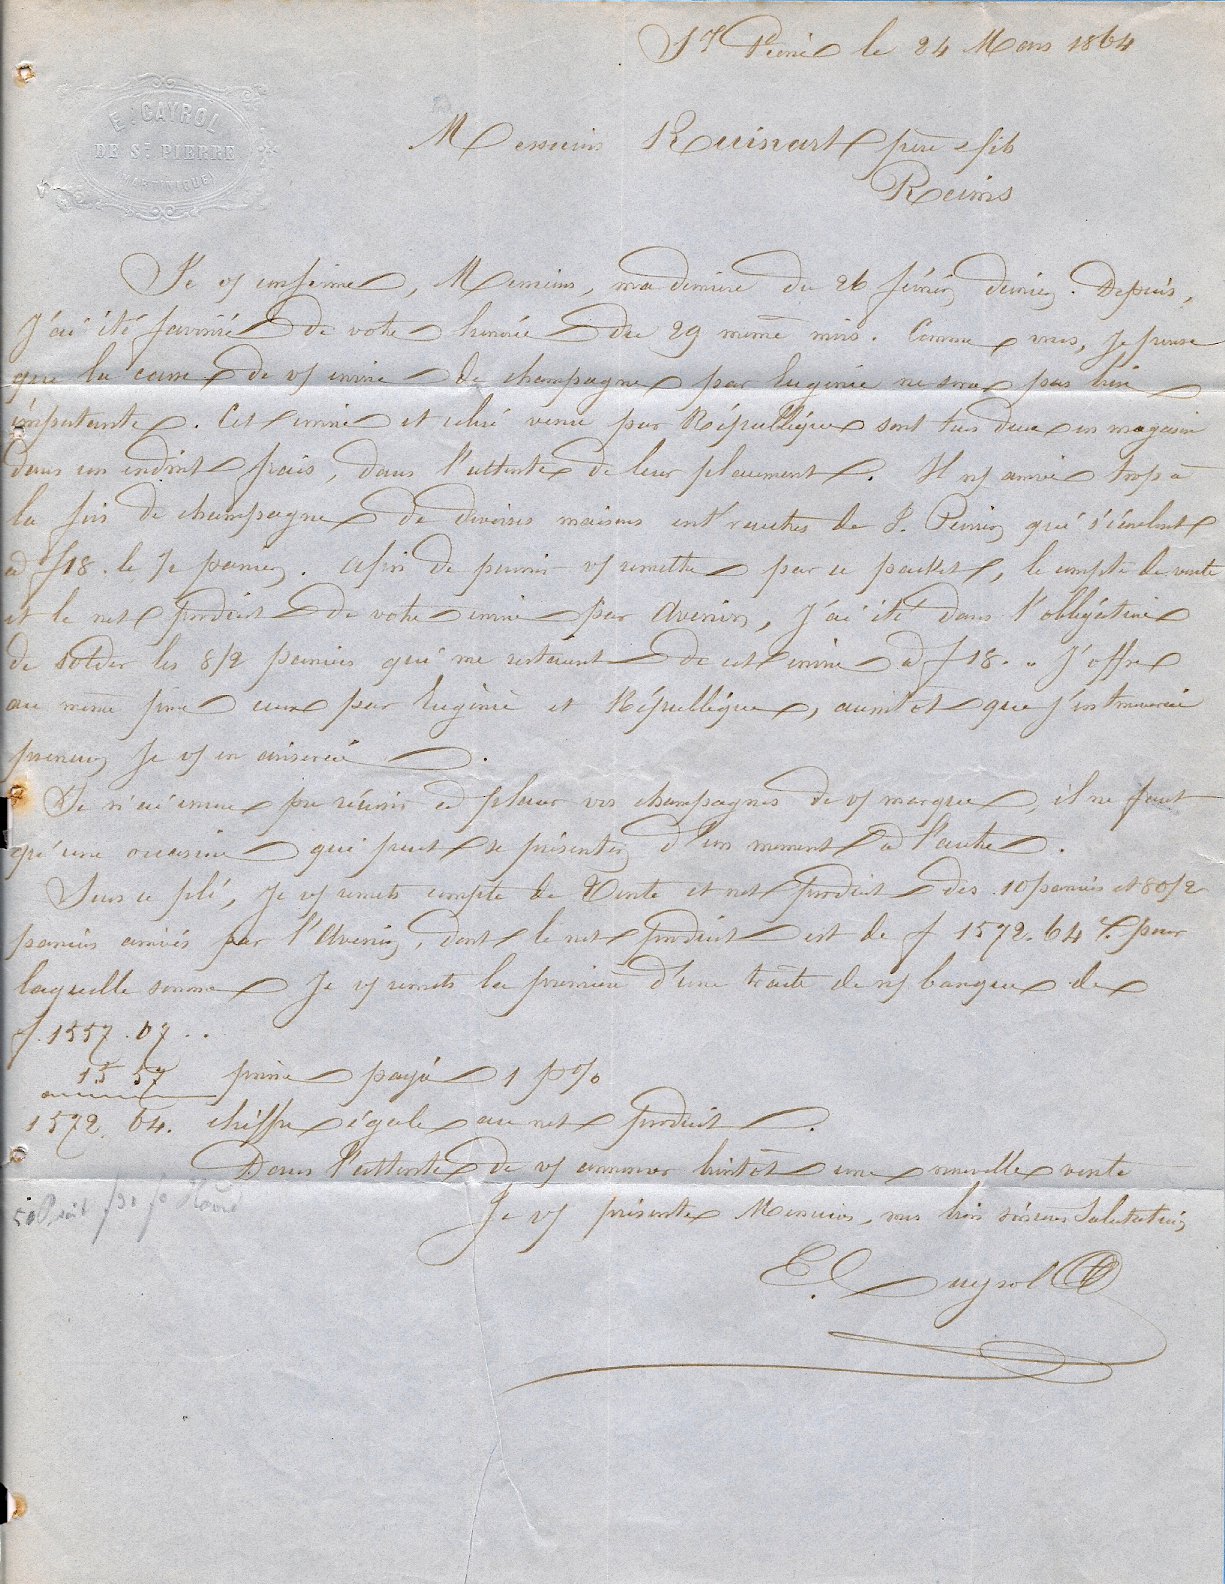 St Pierre le 24 Mars 1864
E. CAYROL
DE St PIERRE
(MARTINIQUE)
Messieurs Ruinart père & fils
Reims
Je vs confirme, Messieurs, ma dernière du 26 février dernier. Depuis,
j'ai été favorisé de votre honorée du 29 même mois. Comme vous, je pense
que la casse de vs envoi de champagne par Eugénie ne sera pas bien
importante. Cet envoi et celui venu par République sont tous deux en magasin
dans un endroit frais, dans l'attente de leur placement. Il ns arrive trop à
la fois de champagne de diverses maisons entr'autres de J. Perrier qui s'écoulent
à f 18. le panier. Afin de pouvoir vs remettre par ce packet, le compte de vente
et le net produit de votre envoi par Avenir, j'ai été dans l'obligation
de solder les 8/2 paniers qui me restaient de cet envoi à f 18.. J'offre
au même prix ceux par Eugénie et République, aussitôt que j'en trouverai
preneur je vs en aviserai.
Je n'ai encore pu réussir à placer vos champagnes de vs marque, il ne faut
qu'une occasion qui peut se présenter d'un moment à l'autre.
Sous ce pli, je vs remets compte de Vente et net produit des 10 paniers et 80/2
paniers arrivés par l'Avenir, dont le net produit est de f 1572.64 c. pour
laquelle somme je vs remets la première d'une traite de ns banque de
f. 1557.07..
15 57 prime payée 1 p%
1572.64. chiffre égale au net produit.
Dans l'attente de vs annoncer bientôt une nouvelle vente
Je vs présente Messieurs, mes bien sincères Salutations
E. Cayrol